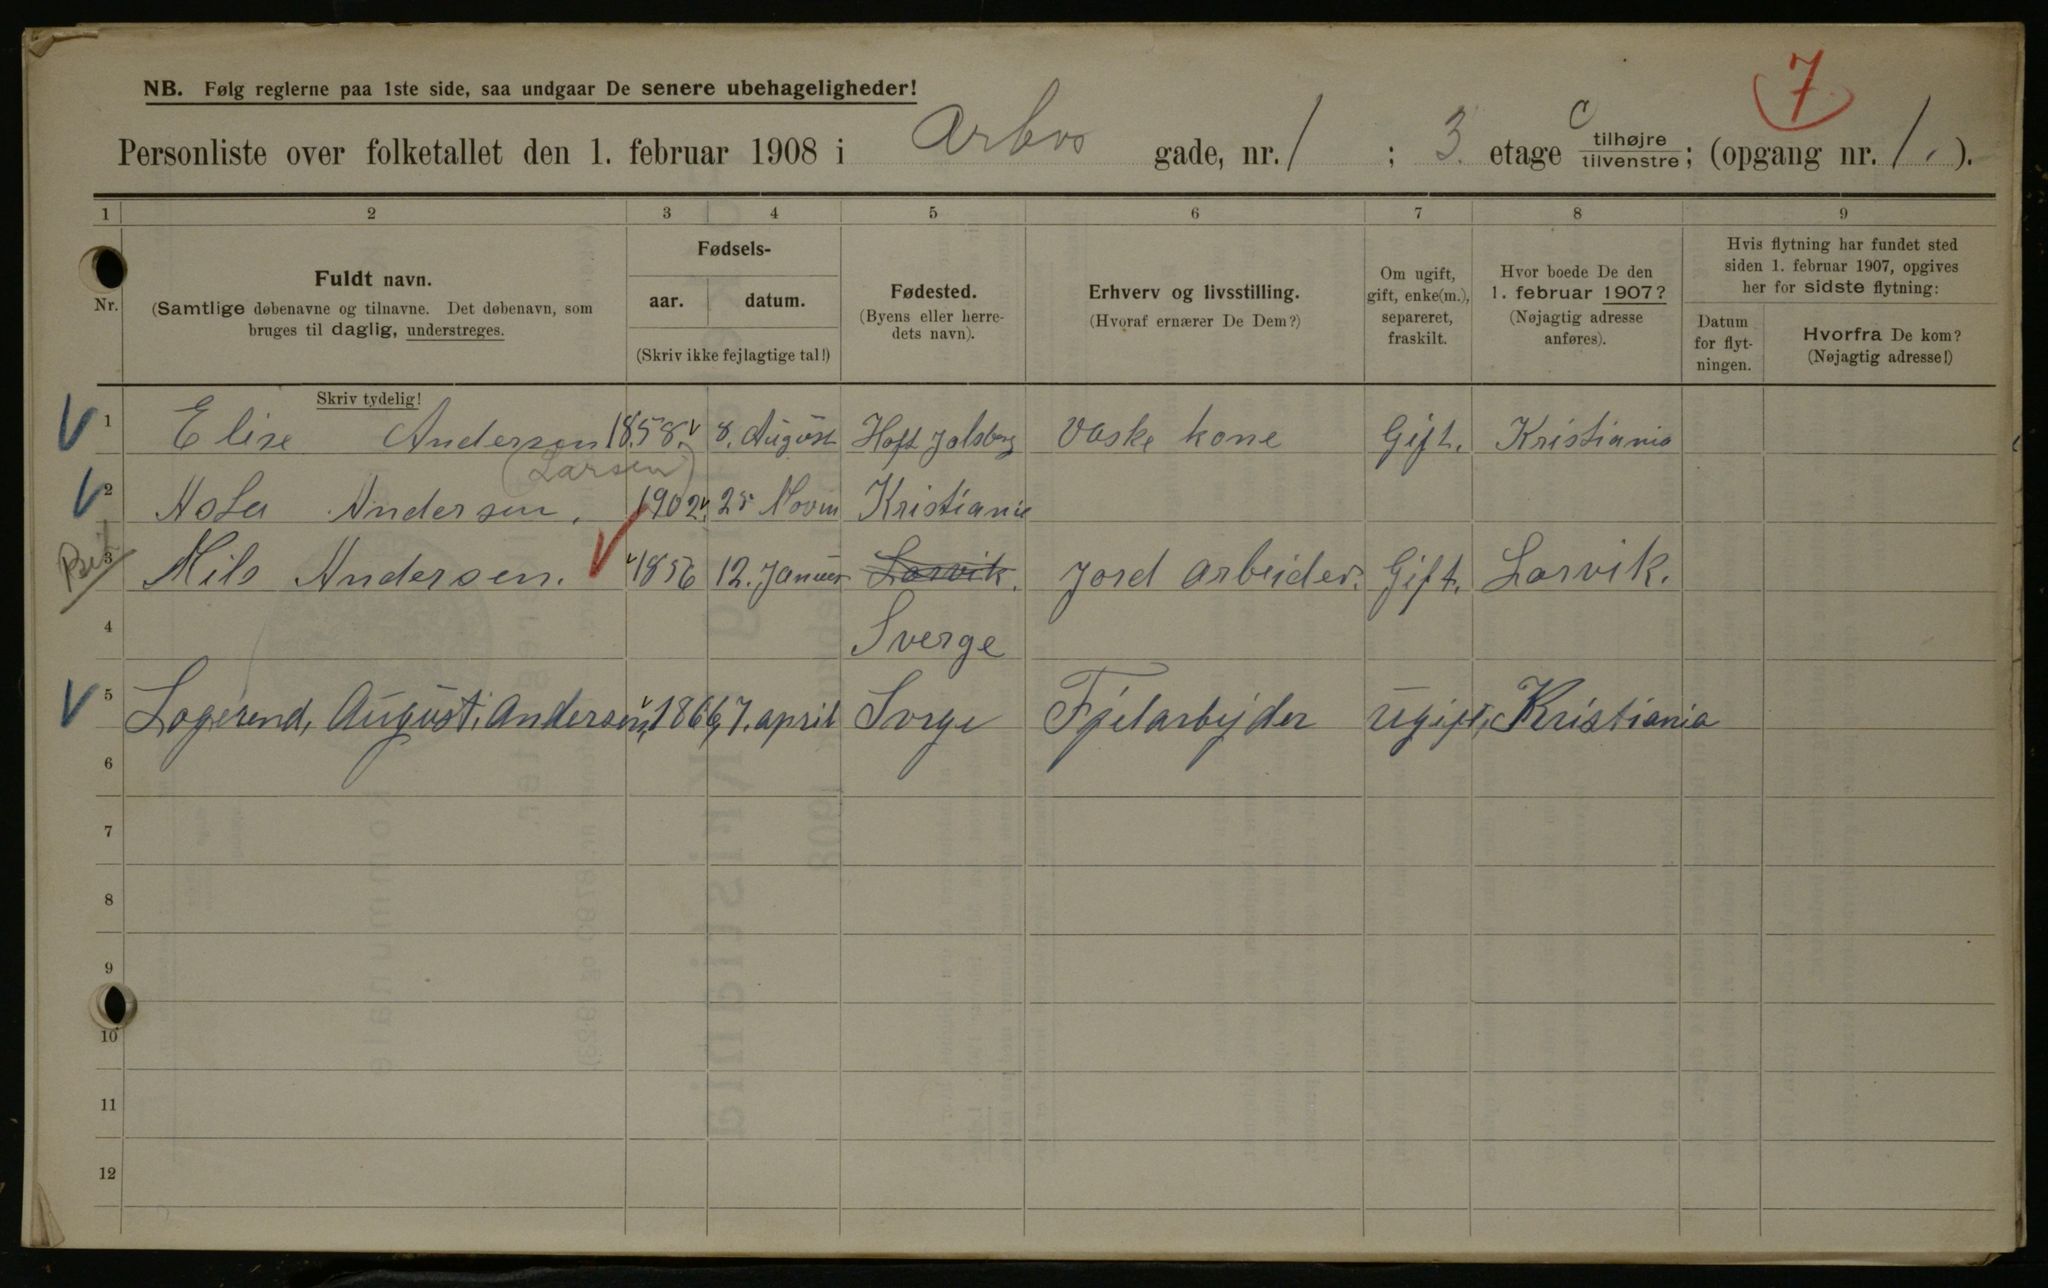 7
NB. Følg reglerne paa 1ste side, saa undgaar De senere ubehageligheder!
Personliste over folketallet den 1. februar 1908 i Arbos gade, nr. 1 ; 3. etage c tilhøjre tilvenstre; (opgang nr. 1. ).
1 2 3 4 5 6 7 8 9
Nr.
Fuldt navn.
(Samtlige døbenavne og tilnavne. Det døbenavn, som
bruges til daglig, understreges.
Skriv tydelig!
Fødsels-
aar. datum.
(Skriv ikke fejlagtige tal!)
Fødested.
(Byens eller herre-
dets navn).
Erhverv og livsstilling.
(Hvoraf ernærer De Dem?)
Om ugift,
gift, enke(m.),
separeret,
fraskilt.
Hvor boede De den
1. februar 1907?
(Nøjagtig adresse
anføres).
Hvis flytning har fundet sted
siden 1. februar 1907, opgives
her for sidste flytning:
Datum
for flyt-
ningen.
Hvorfra De kom?
(Nøjagtig adresse!)
1 Elise Andersen 1858 8. August Hoft Jalsberg Vaske kone Gift. Kristiania
(Larsen)
2 Asta Andersen. 1902 25 Novm Kristiania
3 Nils Andersen. 1856 12. Januer Larvik. Jord arbeider. Gift. Larvik.
4 Sverge
5 Logerend, August. Andersen, 1866, 7. april Sverge Fjelarbejder Ugift, Kristiania
6
7
8
9
10
11
12